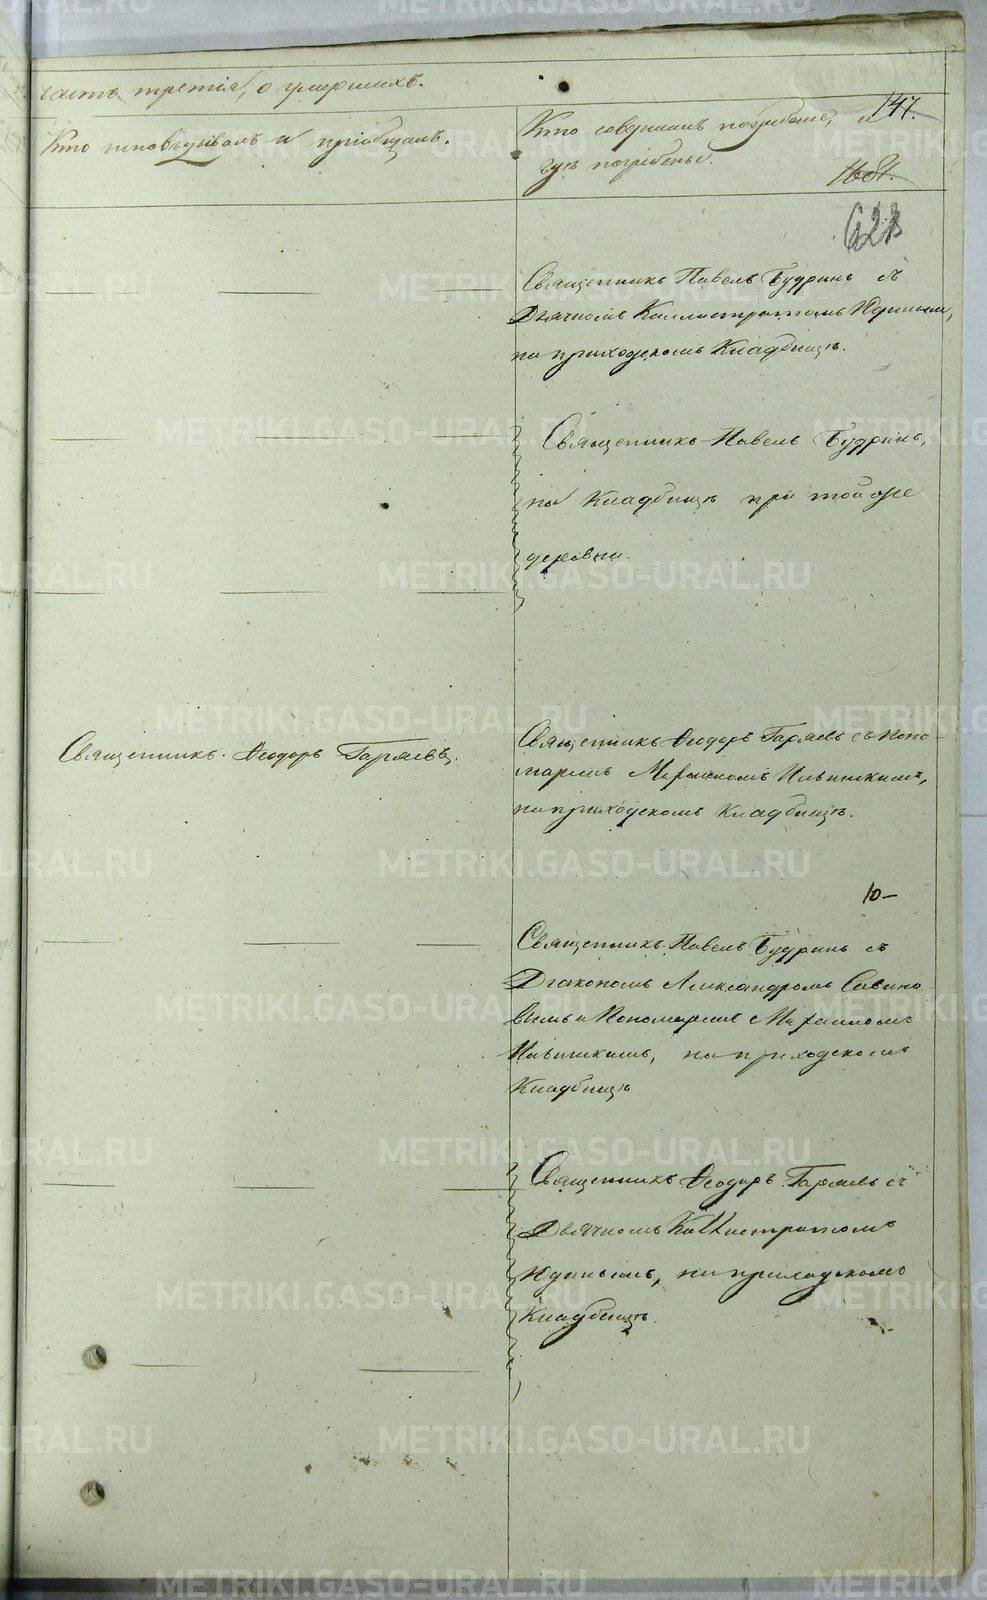 часть третія, о умершихъ.
Кто исповѣдывалъ и пріобщалъ.
Кто совершалъ погребеніе, и
гдѣ погребены.
147.
Священникъ Павелъ Будринъ съ
Дьячкомъ Каллистратомъ
на приходскомъ Кладбищѣ.
Священникъ Павелъ Будринъ,
на Кладбищѣ при той же
деревни.
Священникъ Ѳеодоръ Гаряевъ.
Священникъ Ѳеодоръ Гаряевъ съ Поно-
маремъ Ильинскимъ,
на приходскомъ Кладбищѣ.
10-
Священникъ Павелъ Будринъ съ
Діакономъ Александромъ Савино
вымъ и Пономаремъ
Ильинскимъ, на приходскомъ
Кладбищѣ
Священникъ Ѳеодоръ Гаряевъ съ
Дьячкомъ Каллистратомъ
на приходскомъ
Кладбищѣ.
METRIKI.GASO-URAL.RU